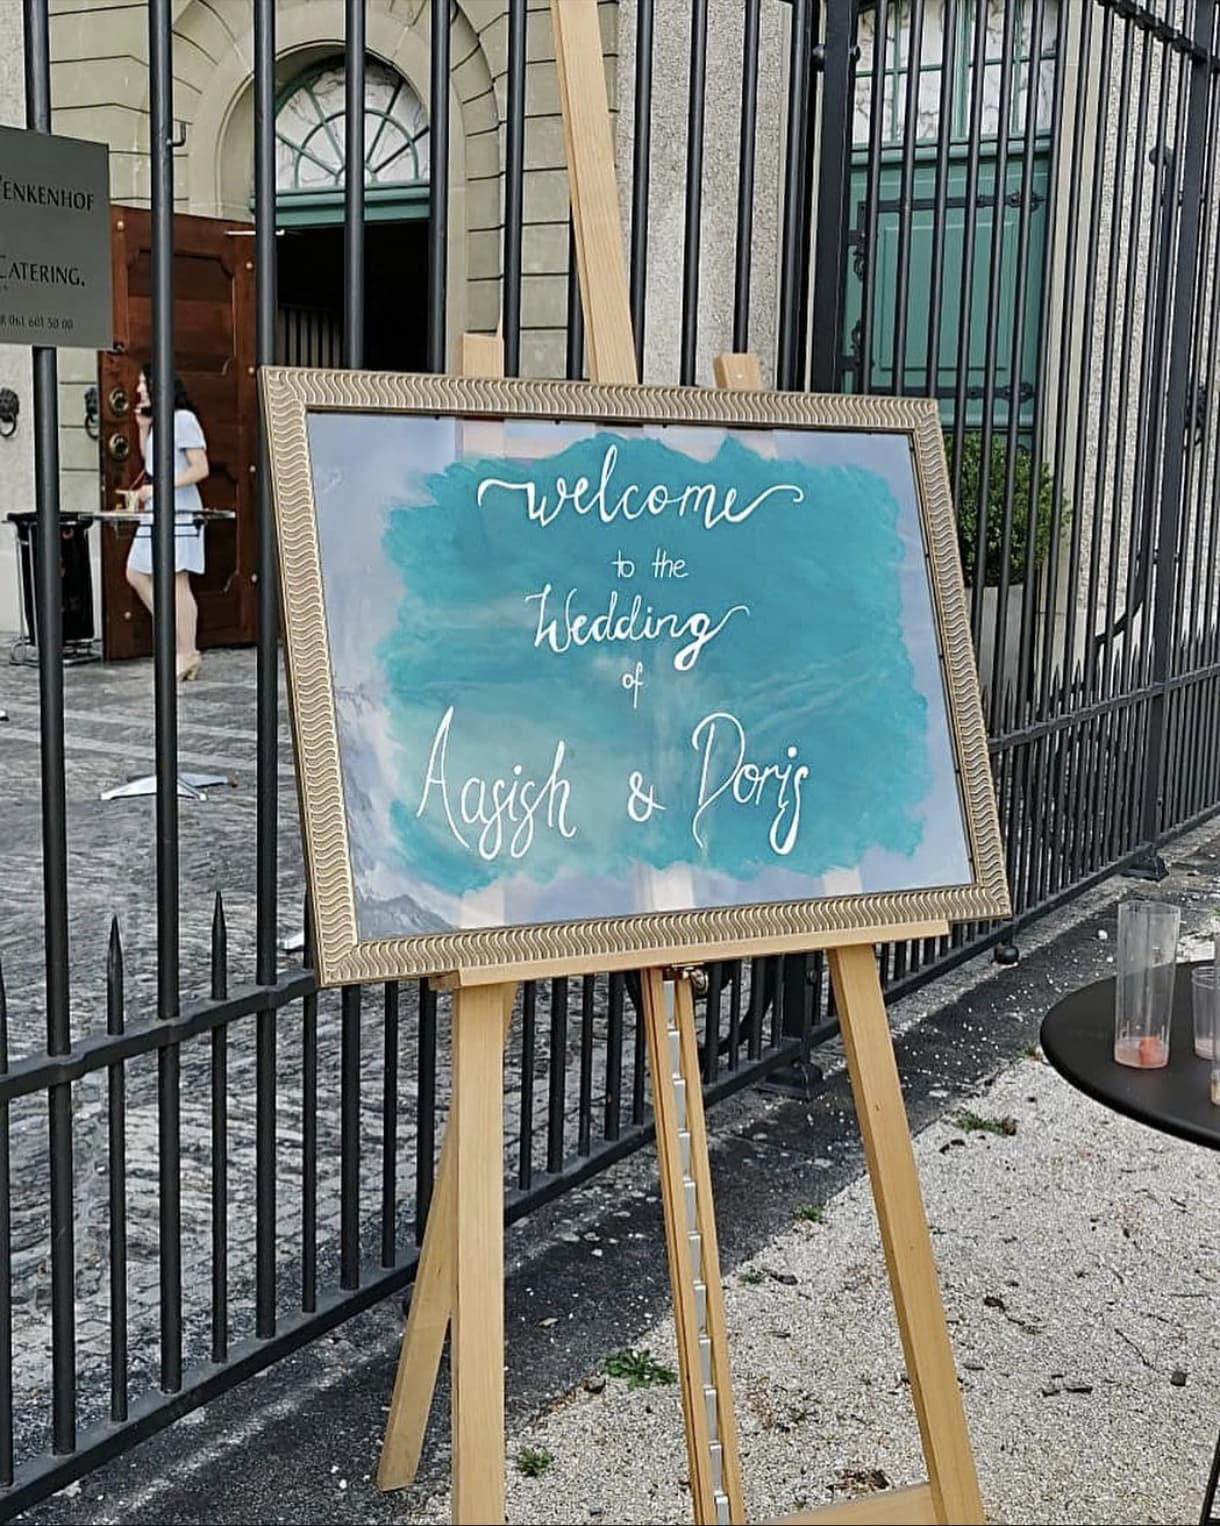 ENKENHOF
CATERING.
061 601 50 00
welcome
to the
Wedding
of
Aasish & Doris